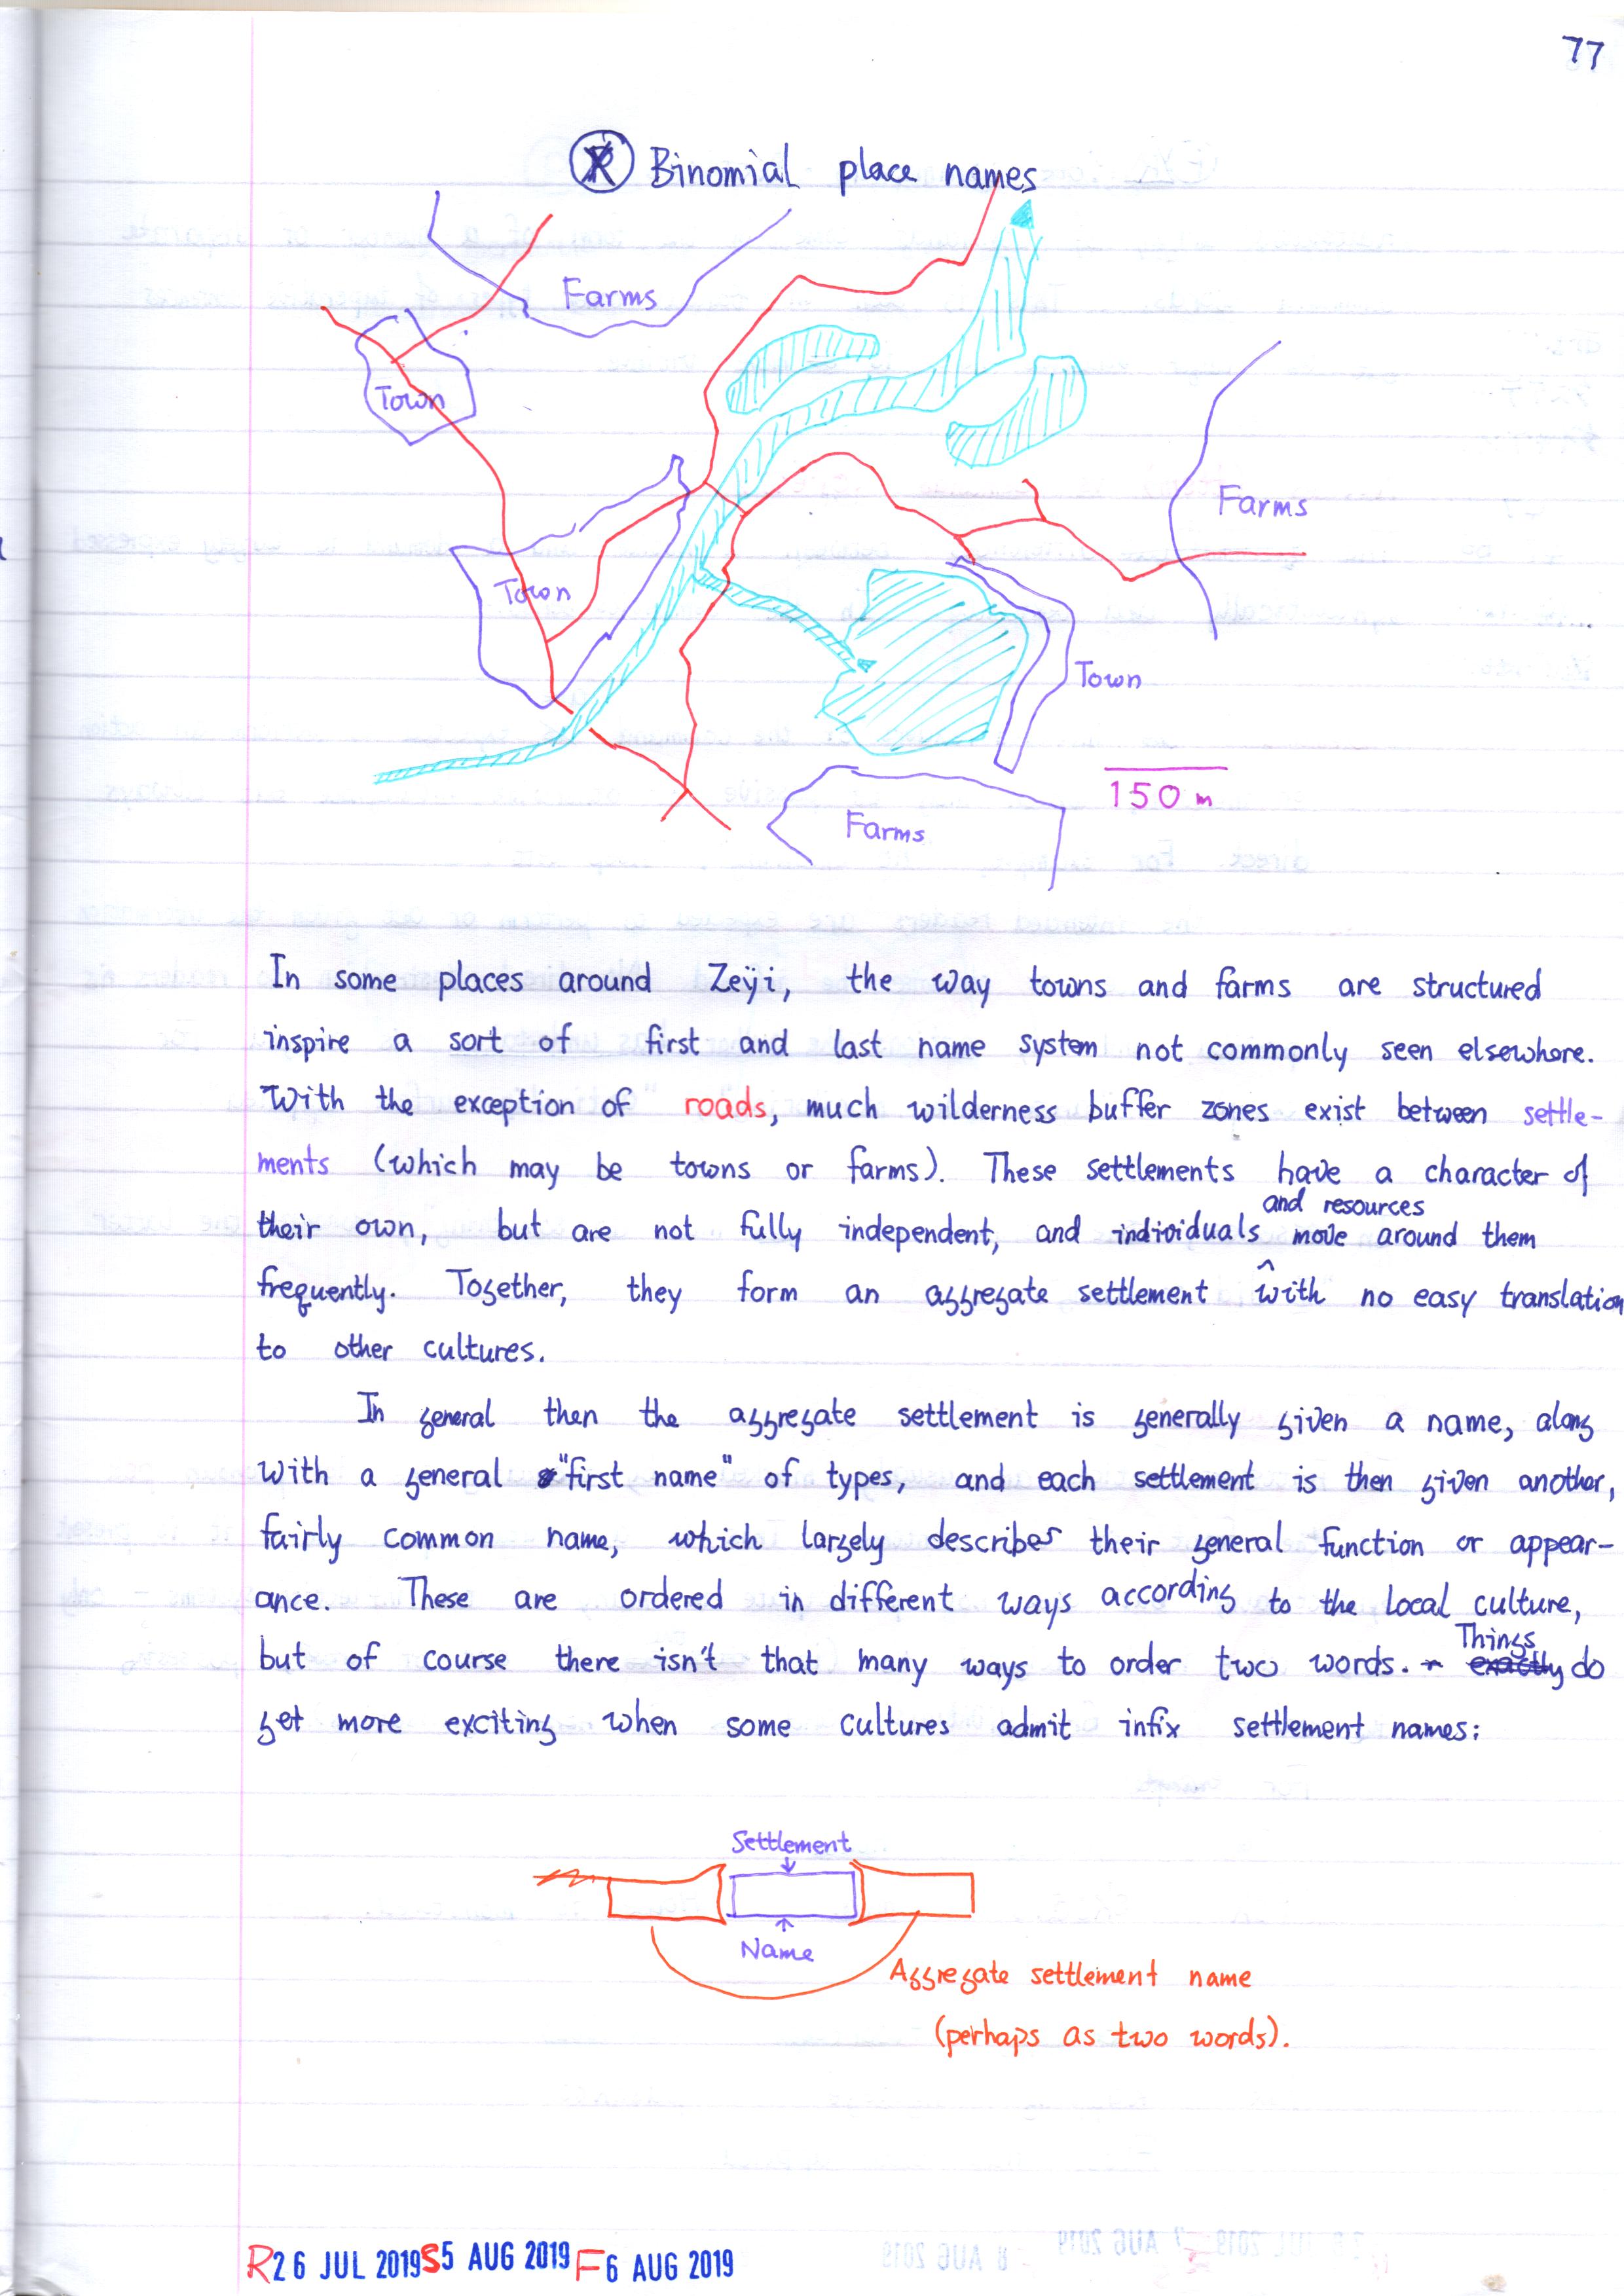 77
Binomial place names
Farms
Town
Farms
Town
Town
150 m
Farms
In some places around Zeÿi, the way towns and farms are structured
inspire a sort of first and last name system not commonly seen elsewhere.
With the exception of roads, much wilderness buffer zones exist between settle-
ments (which may be towns or farms). These settlements have a character of
their own, but are not fully independent, and individuals and resources move around them
frequently. Together, they form an aggregate settlement with no easy translation
to other cultures.
In general then the aggregate settlement is generally given a name, along
with a general "first name" of types, and each settlement is then given another,
fairly common name, which largely describes their general function or appear-
ance. These are ordered in different ways according to the local culture,
but of course there isn't that many ways to order two words. Things do
get more exciting when some cultures admit infix settlement names:
Settlement
Name
Aggregate settlement name
(perhaps as two words).
R26 JUL 2019 S5 AUG 2019 F6 AUG 2019